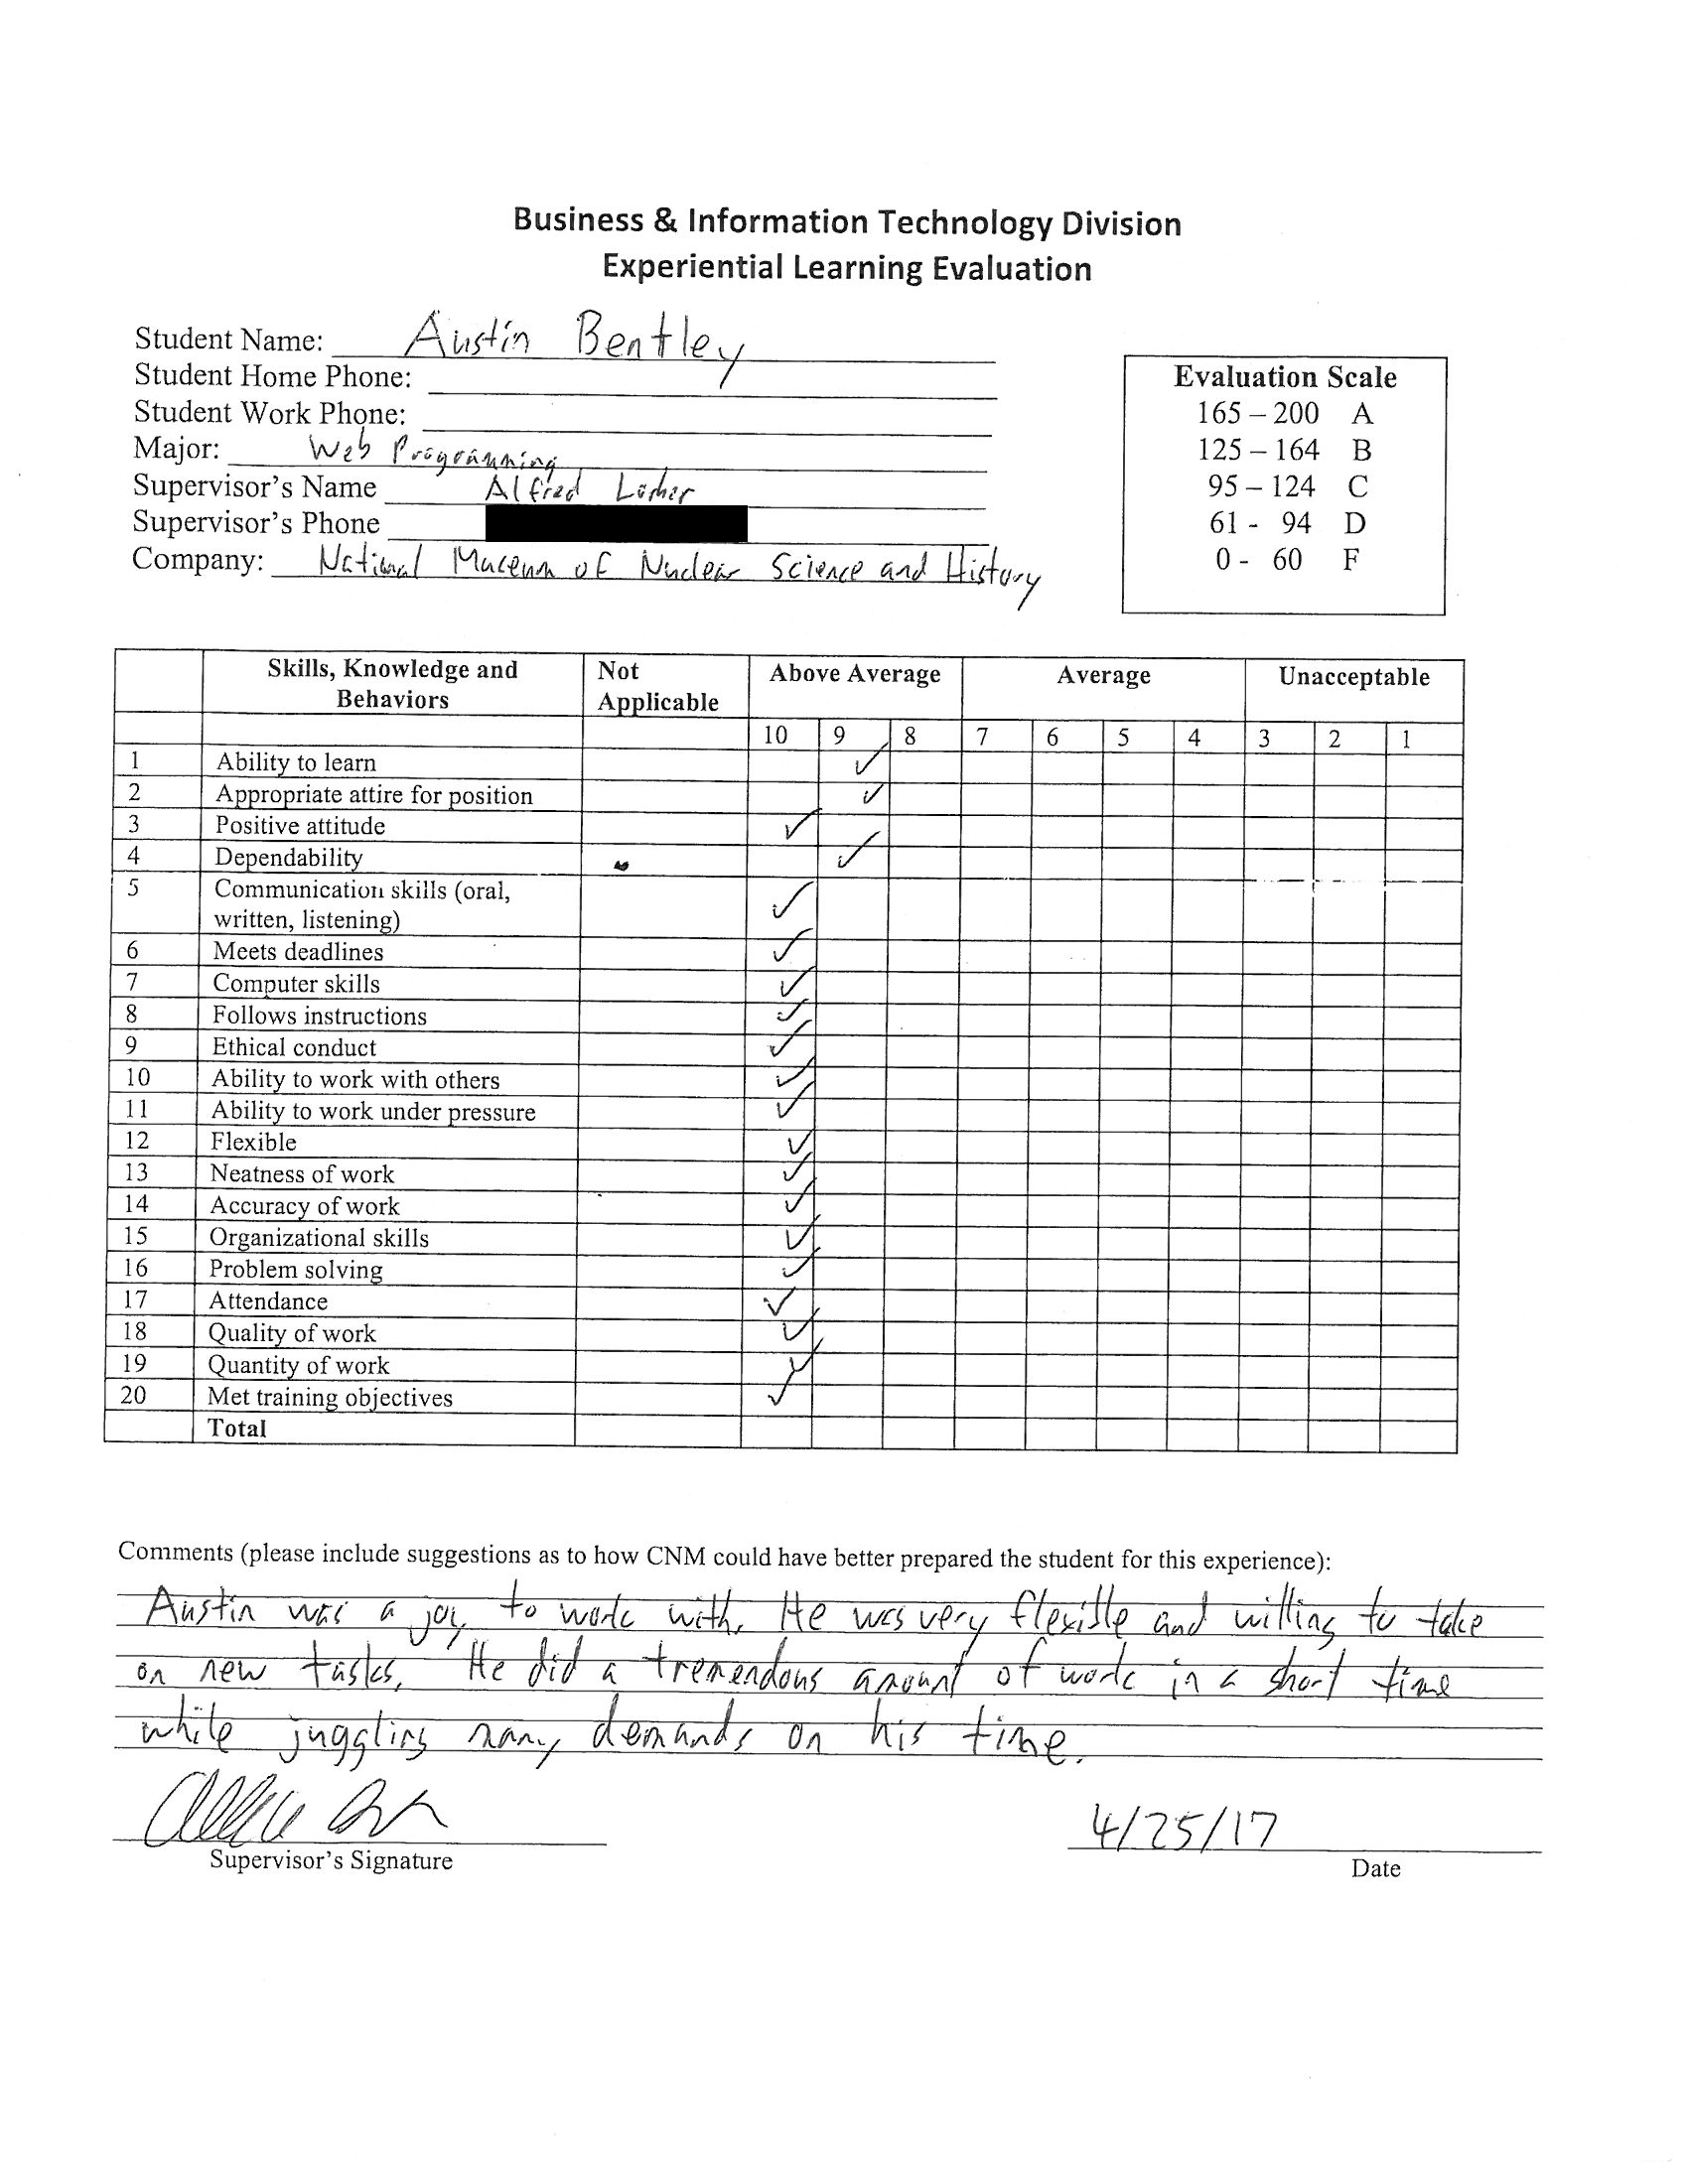 Business & Information Technology Division
Experiential Learning Evaluation
Student Name: Austin Bentley
Student Home Phone:
Student Work Phone:
Major: Web Programming
Supervisor's Name Alfred
Supervisor's Phone
Company: National Museum of Nuclear Science and History
Evaluation Scale
165 – 200 A
125 – 164 B
95 – 124 C
61 - 94 D
0 - 60 F
Skills, Knowledge and Behaviors Not Applicable Above Average Average Unacceptable
10 9 8 7 6 5 4 3 2 1
1 Ability to learn ✓
2 Appropriate attire for position ✓
3 Positive attitude ✓
4 Dependability ✓
5 Communication skills (oral,
written, listening) ✓
6 Meets deadlines ✓
7 Computer skills ✓
8 Follows instructions ✓
9 Ethical conduct ✓
10 Ability to work with others ✓
11 Ability to work under pressure ✓
12 Flexible ✓
13 Neatness of work ✓
14 Accuracy of work ✓
15 Organizational skills ✓
16 Problem solving ✓
17 Attendance ✓
18 Quality of work ✓
19 Quantity of work ✓
20 Met training objectives ✓
Total
Comments (please include suggestions as to how CNM could have better prepared the student for this experience):
Austin was a joy to work with. He was very flexible and willing to take
on new tasks. He did a tremendous amount of work in a short time
while juggling many demands on his time.
4/25/17
Supervisor's Signature
Date